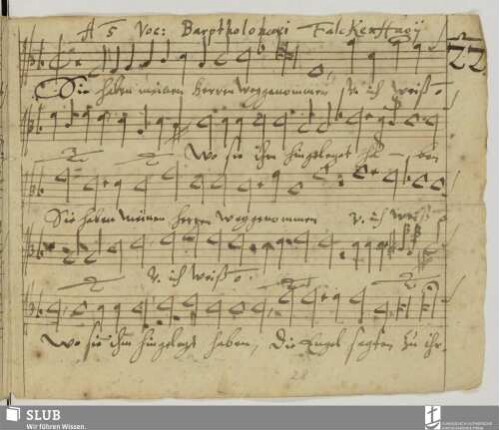 A 5 Voc: Barptholomæi FalckenHagÿ
77
Sie haben meinen Herren weggenommen, v. ich weiß
Wo sie ihn hingelegt ha - ben
Sie haben meinen Herren weggenommen v. ich weiß
v. ich weiß
Wo sie ihn hingelegt haben, Die Engel sagten zu ihr
SLUB
Wir führen Wissen.